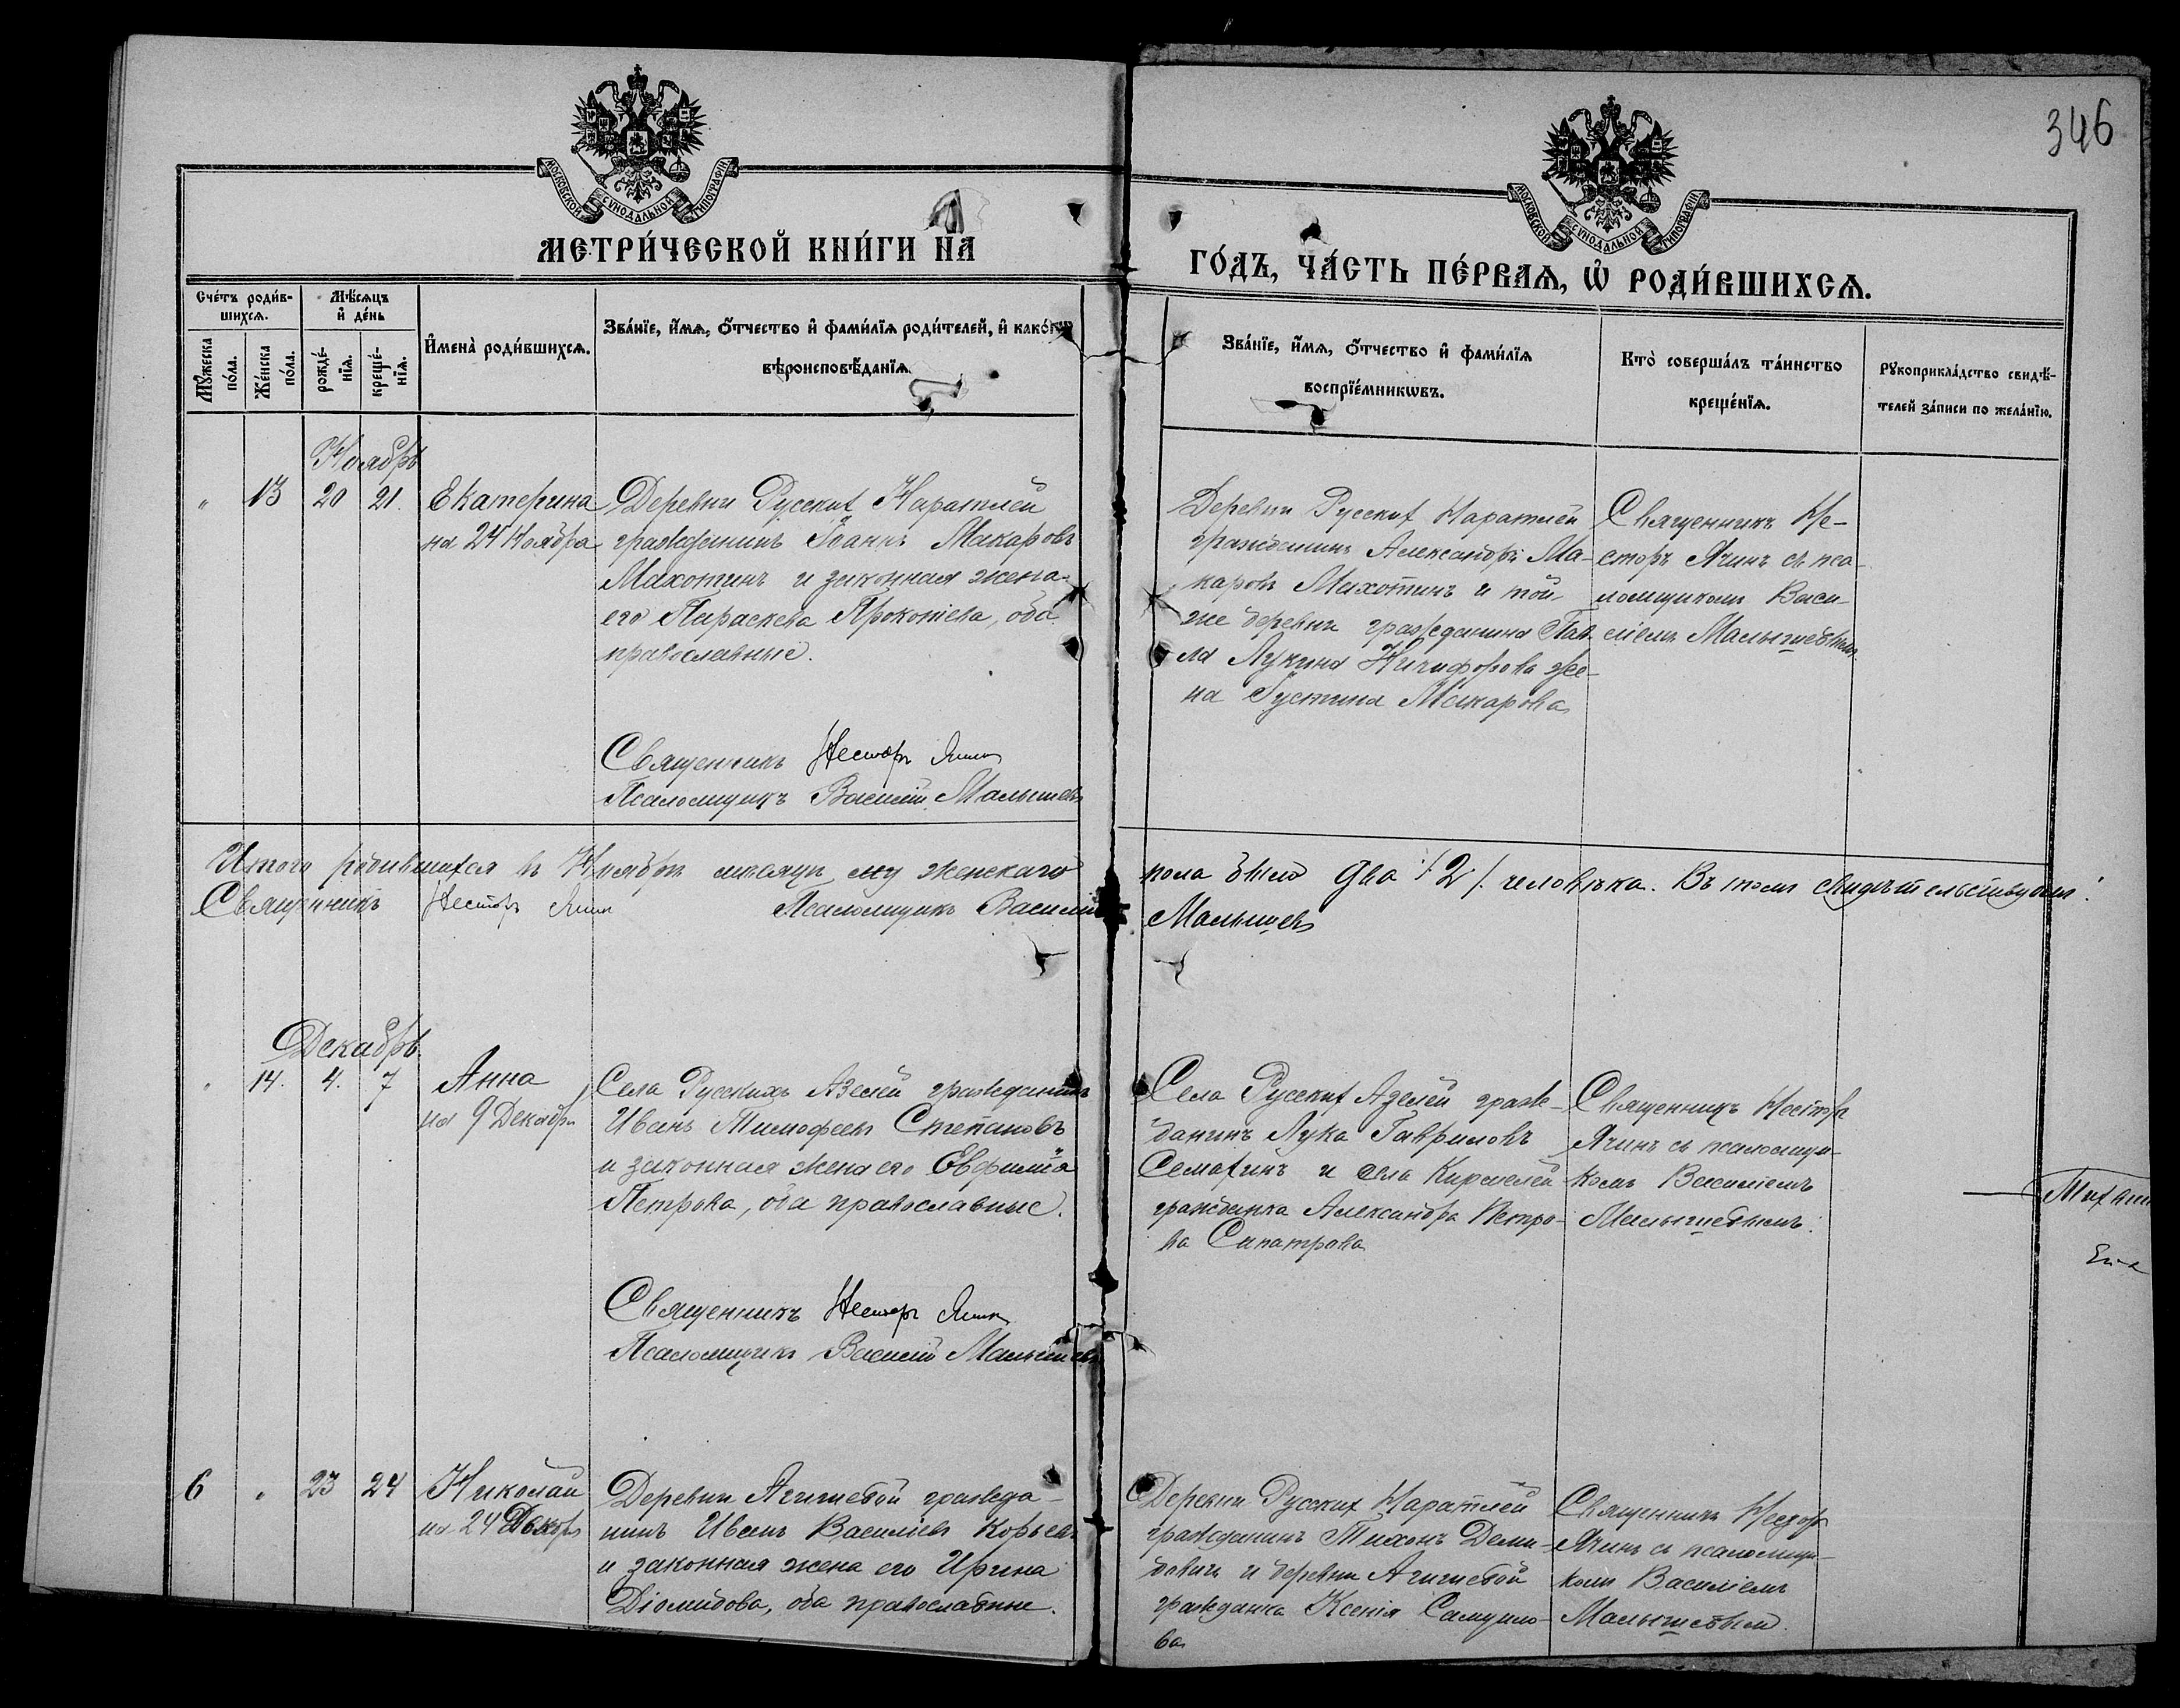 346
МОСКОВСКОЙ СУНОДАЛЬНОЙ ТИПОГРАФІИ
МОСКОВСКОЙ СУНОДАЛЬНОЙ ТИПОГРАФІИ
МЕТРИ́ЧЕСКОЙ КНИ́ГИ НА
ГО́ДЪ, ЧА́СТЬ ПЕ́РВАѦ, Ѽ РОДИ́ВШИХСѦ.
Сче́тъ роди́в-
шихсѧ.
Мѣ́сѧцъ
и де́нь
Мꙋ́жеска
по́ла.
Же́нска
по́ла.
рожде́-
нїѧ.
креще́-
нїѧ.
Имена̀ роди́вшихсѧ.
Зва́нїе, и́мѧ, ѻ́тчество и фами́лїѧ роди́телей, и како́гѡ
вѣроисповѣ́данїѧ.
Зва́нїе, и́мѧ, ѻ́тчество и фами́лїѧ
воспрїе́мникѡвъ.
Кто̀ соверша́лъ та́инство
креще́нїѧ.
Рꙋкоприкла́дство свидѣ́-
телей за́писи по жела́нїю.
Ноябрь
" 13 20 21.
Екатерина
на 24 Ноября
Деревни Русских Каратлей
гражданинъ Іоаннъ Макаровъ
Махотинъ и законная жена
его Параскева Прокопіева, оба
православные.
Священникъ Несторъ Ячин
Псаломщикъ Василій Малышевъ
Деревни Русских Каратлей
гражданинъ Александръ Ма-
каровъ Махотинъ и той
же деревни гражданина Пав-
ла Лукина Никифорова же-
на Іустина Макарова
Священникъ Не-
сторъ Ячинъ съ пса-
ломщикомъ Васи-
ліемъ Малышевымъ.
Итого родившихся въ Ноябрѣ мѣсяцѣ женскаго
пола было два /2/ человѣка. Въ томъ свидѣтельствуемъ:
Священникъ Несторъ Ячин Псаломщикъ Василій
Малышевъ
Декабрь
" 14. 4. 7
Анна
на 9 Декабря
Села Русскихъ Азелей гражданинъ
Иванъ Тимофеевъ Степановъ
и законная жена его Евфимія
Петрова, оба православные.
Священникъ Несторъ Ячин
Псаломщикъ Василій Малышевъ
Села Русских Азелей граж-
данинъ Лука Гавриловъ
Семахинъ и села
гражданка Александра Петро-
ва Сипатрова
Священникъ Несторъ
Ячинъ съ псаломщи-
комъ Василіемъ
Малышевымъ.
6 " 23 24
Николай
на 24 Декабр
Деревни Агишевой гражда-
нинъ Иванъ Василіевъ
и законная жена его Ирина
Діомидова, оба православные.
Деревни Русских Каратлей
гражданинъ Тихонъ Деми-
довичъ и деревни Агишевой
гражданка Ксенія Самуило-
ва
Священникъ Несторъ
Ячинъ съ псаломщи-
комъ Василіемъ
Малышевым.